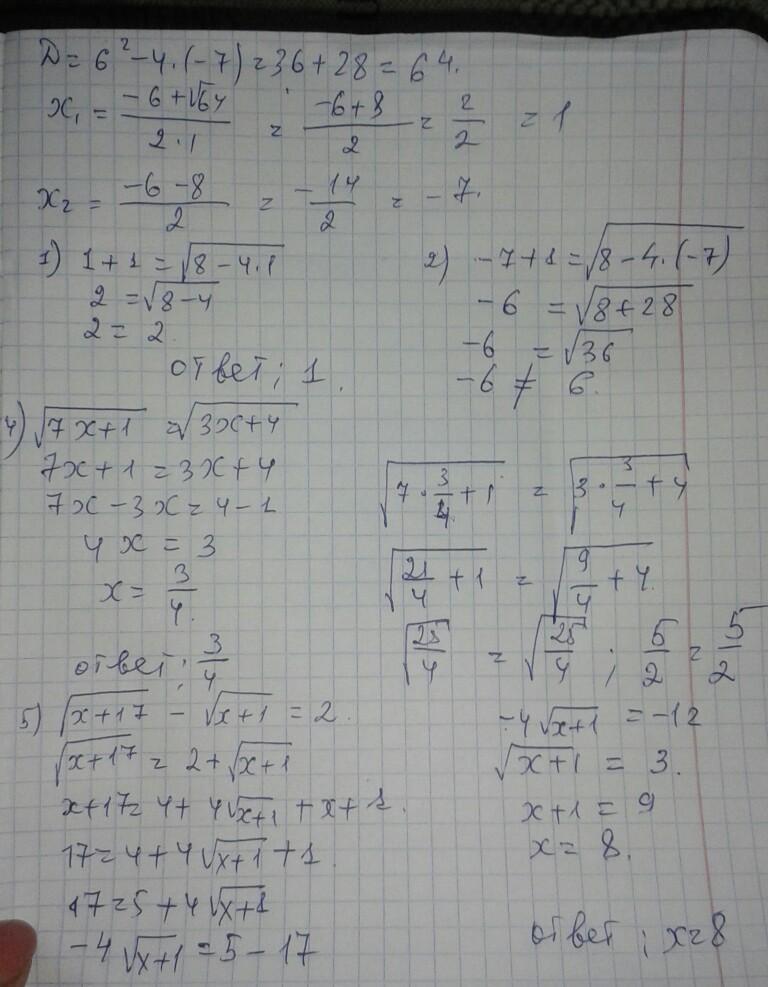 D = 6² - 4·(-7) = 36 + 28 = 64.
x₁ = (-6 + √64)/(2·1) = (-6+8)/2 = 2/2 = 1
x₂ = (-6 - 8)/2 = -14/2 = -7.
1) 1 + 1 = √(8 - 4·1)
2 = √(8-4)
2 = 2
ответ; 1.
2) -7 + 1 = √(8 - 4·(-7))
-6 = √(8+28)
-6 = √36
-6 ≠ 6.
4) √(7x+1) = √(3x+4)
7x+1 = 3x+4
7x - 3x = 4 - 1
4x = 3
x = 3/4.
ответ; 3/4
√(7·3/4 + 1) = √(3·3/4 + 4)
√(21/4 + 1) = √(9/4 + 4)
√(25/4) = √(25/4) ; 5/2 = 5/2
5) √(x+17) - √(x+1) = 2.
√(x+17) = 2 + √(x+1)
x+17 = 4 + 4√(x+1) + x + 1.
17 = 4 + 4√(x+1) + 1.
17 = 5 + 4√(x+1)
-4√(x+1) = 5 - 17
-4√(x+1) = -12
√(x+1) = 3.
x+1 = 9
x = 8.
ответ; x=8